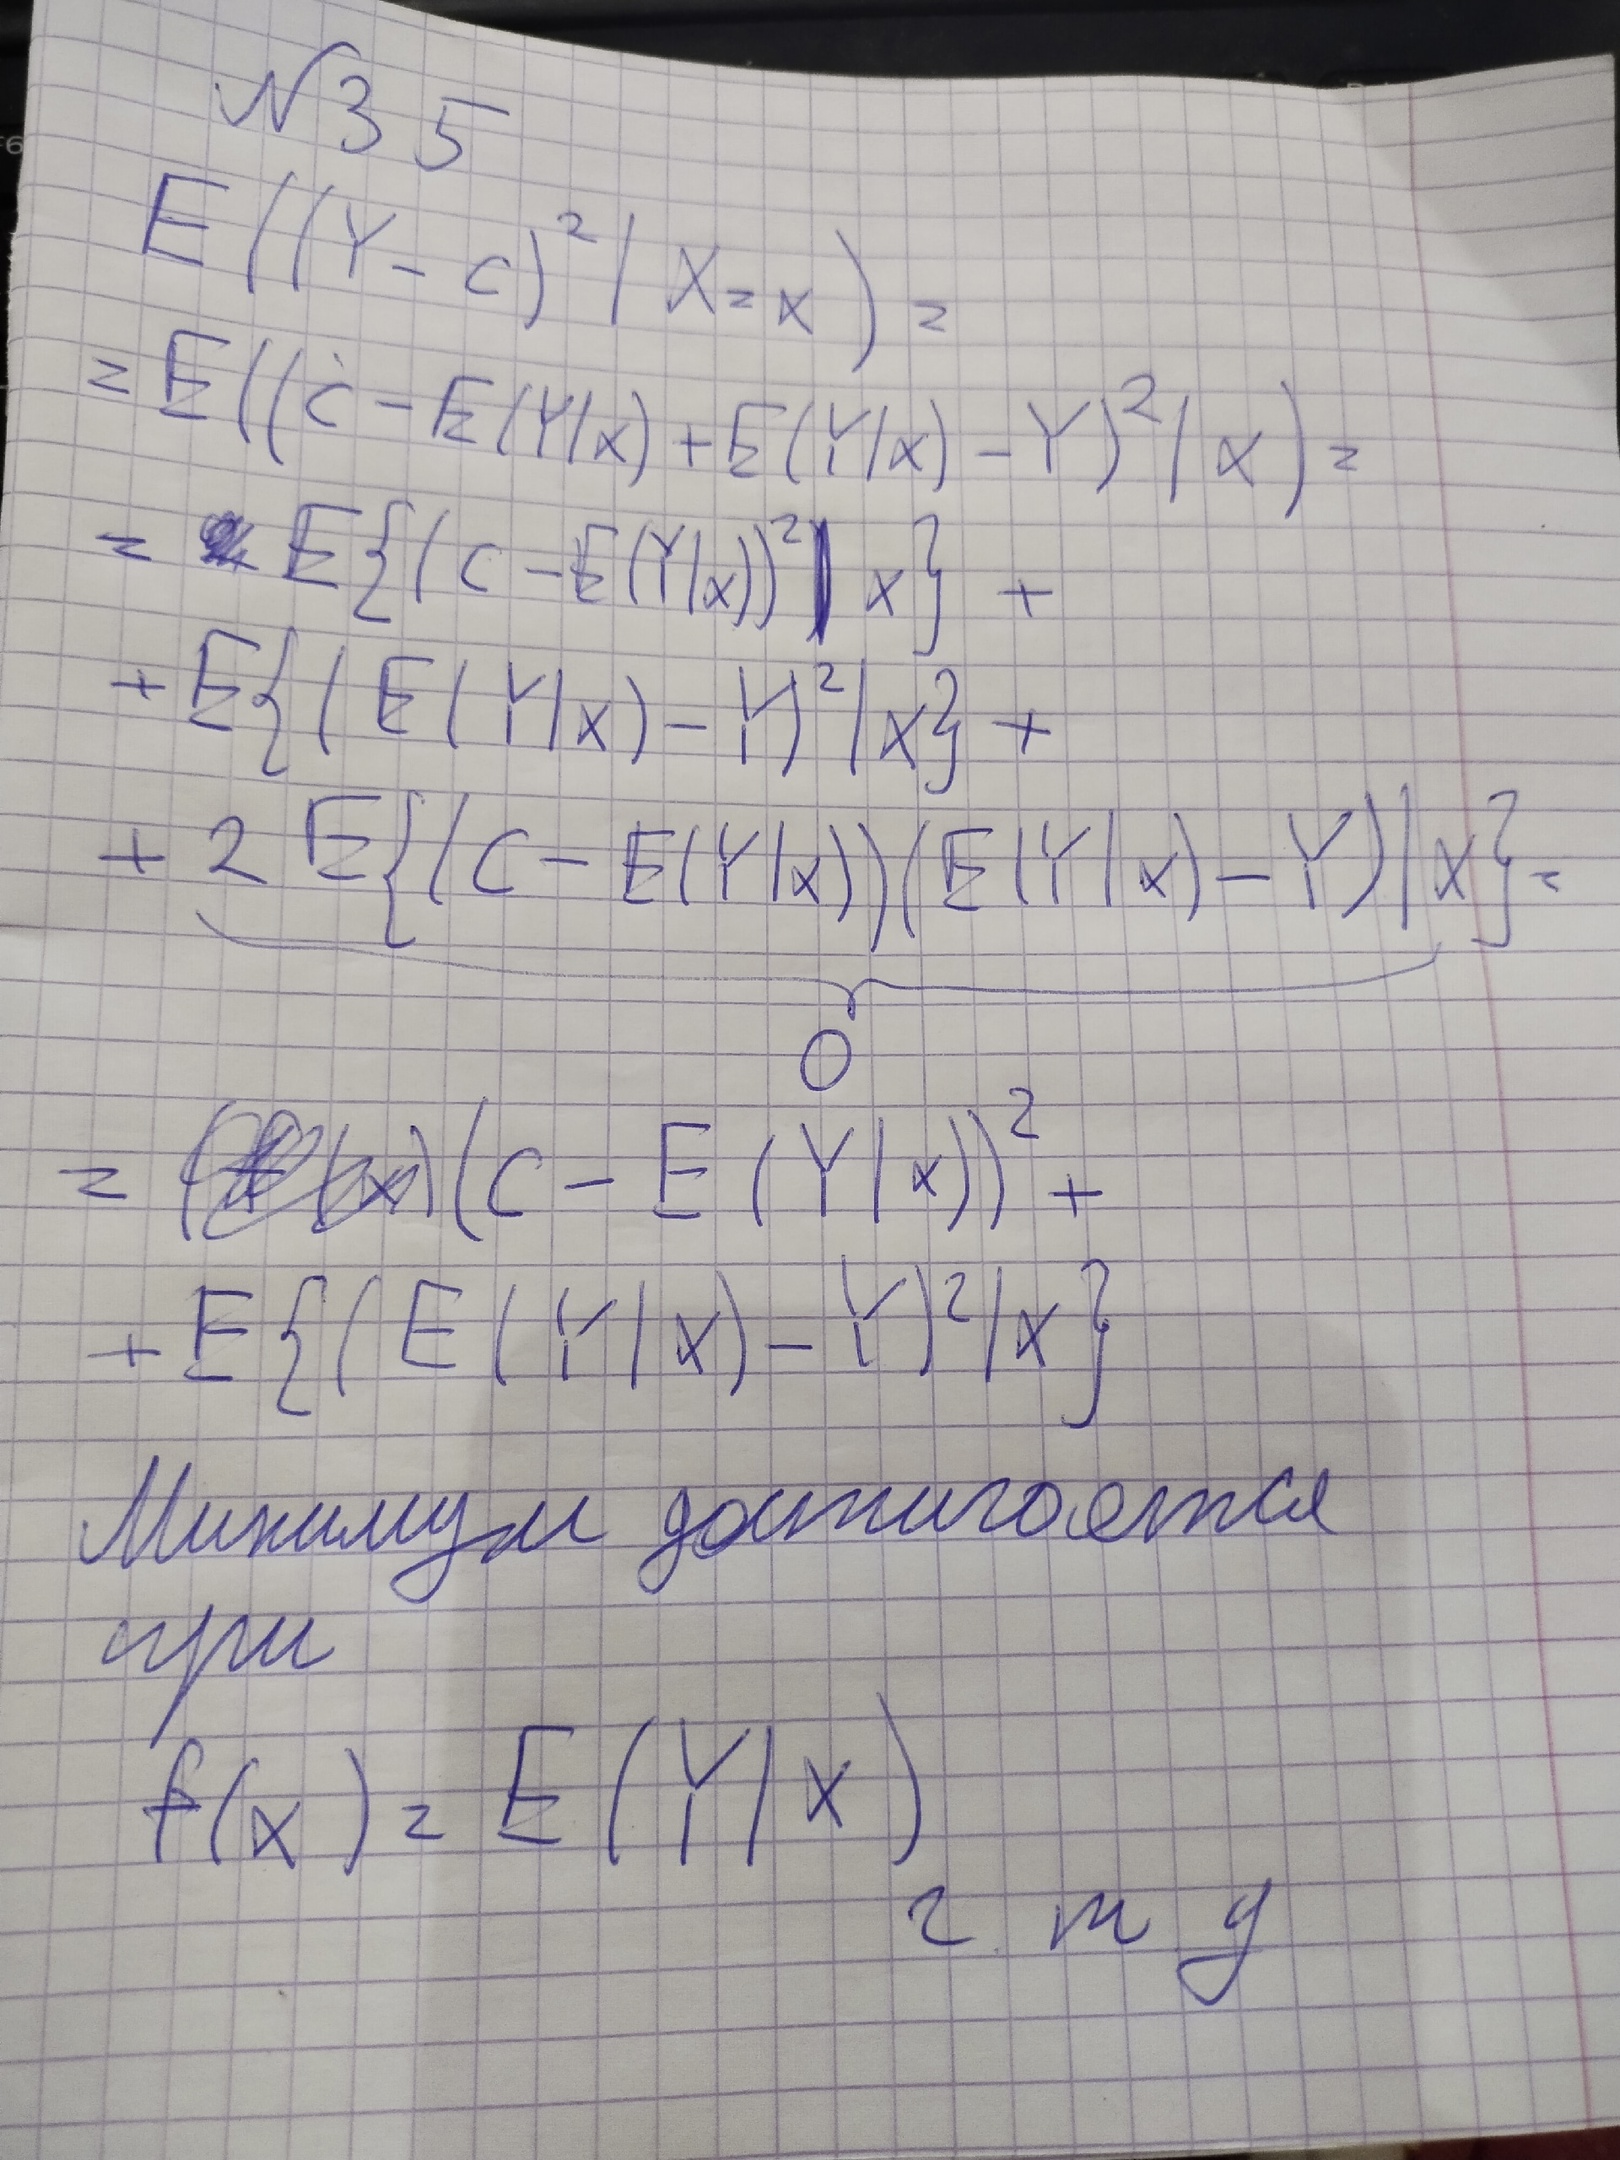 № 35
E((Y-c)²|X=x)=
=E((c-E(Y|x)+E(Y|x)-Y)²|x)=
= E{(c-E(Y|x))²|x} +
+E{(E(Y|x)-Y)²|x} +
+ 2 E{(c-E(Y|x))(E(Y|x)-Y)|x}=
0
= (c-E(Y|x))² +
+E{(E(Y|x)-Y)²|x}
Минимум достигается
при
f(x)=E(Y|x)
ч т д